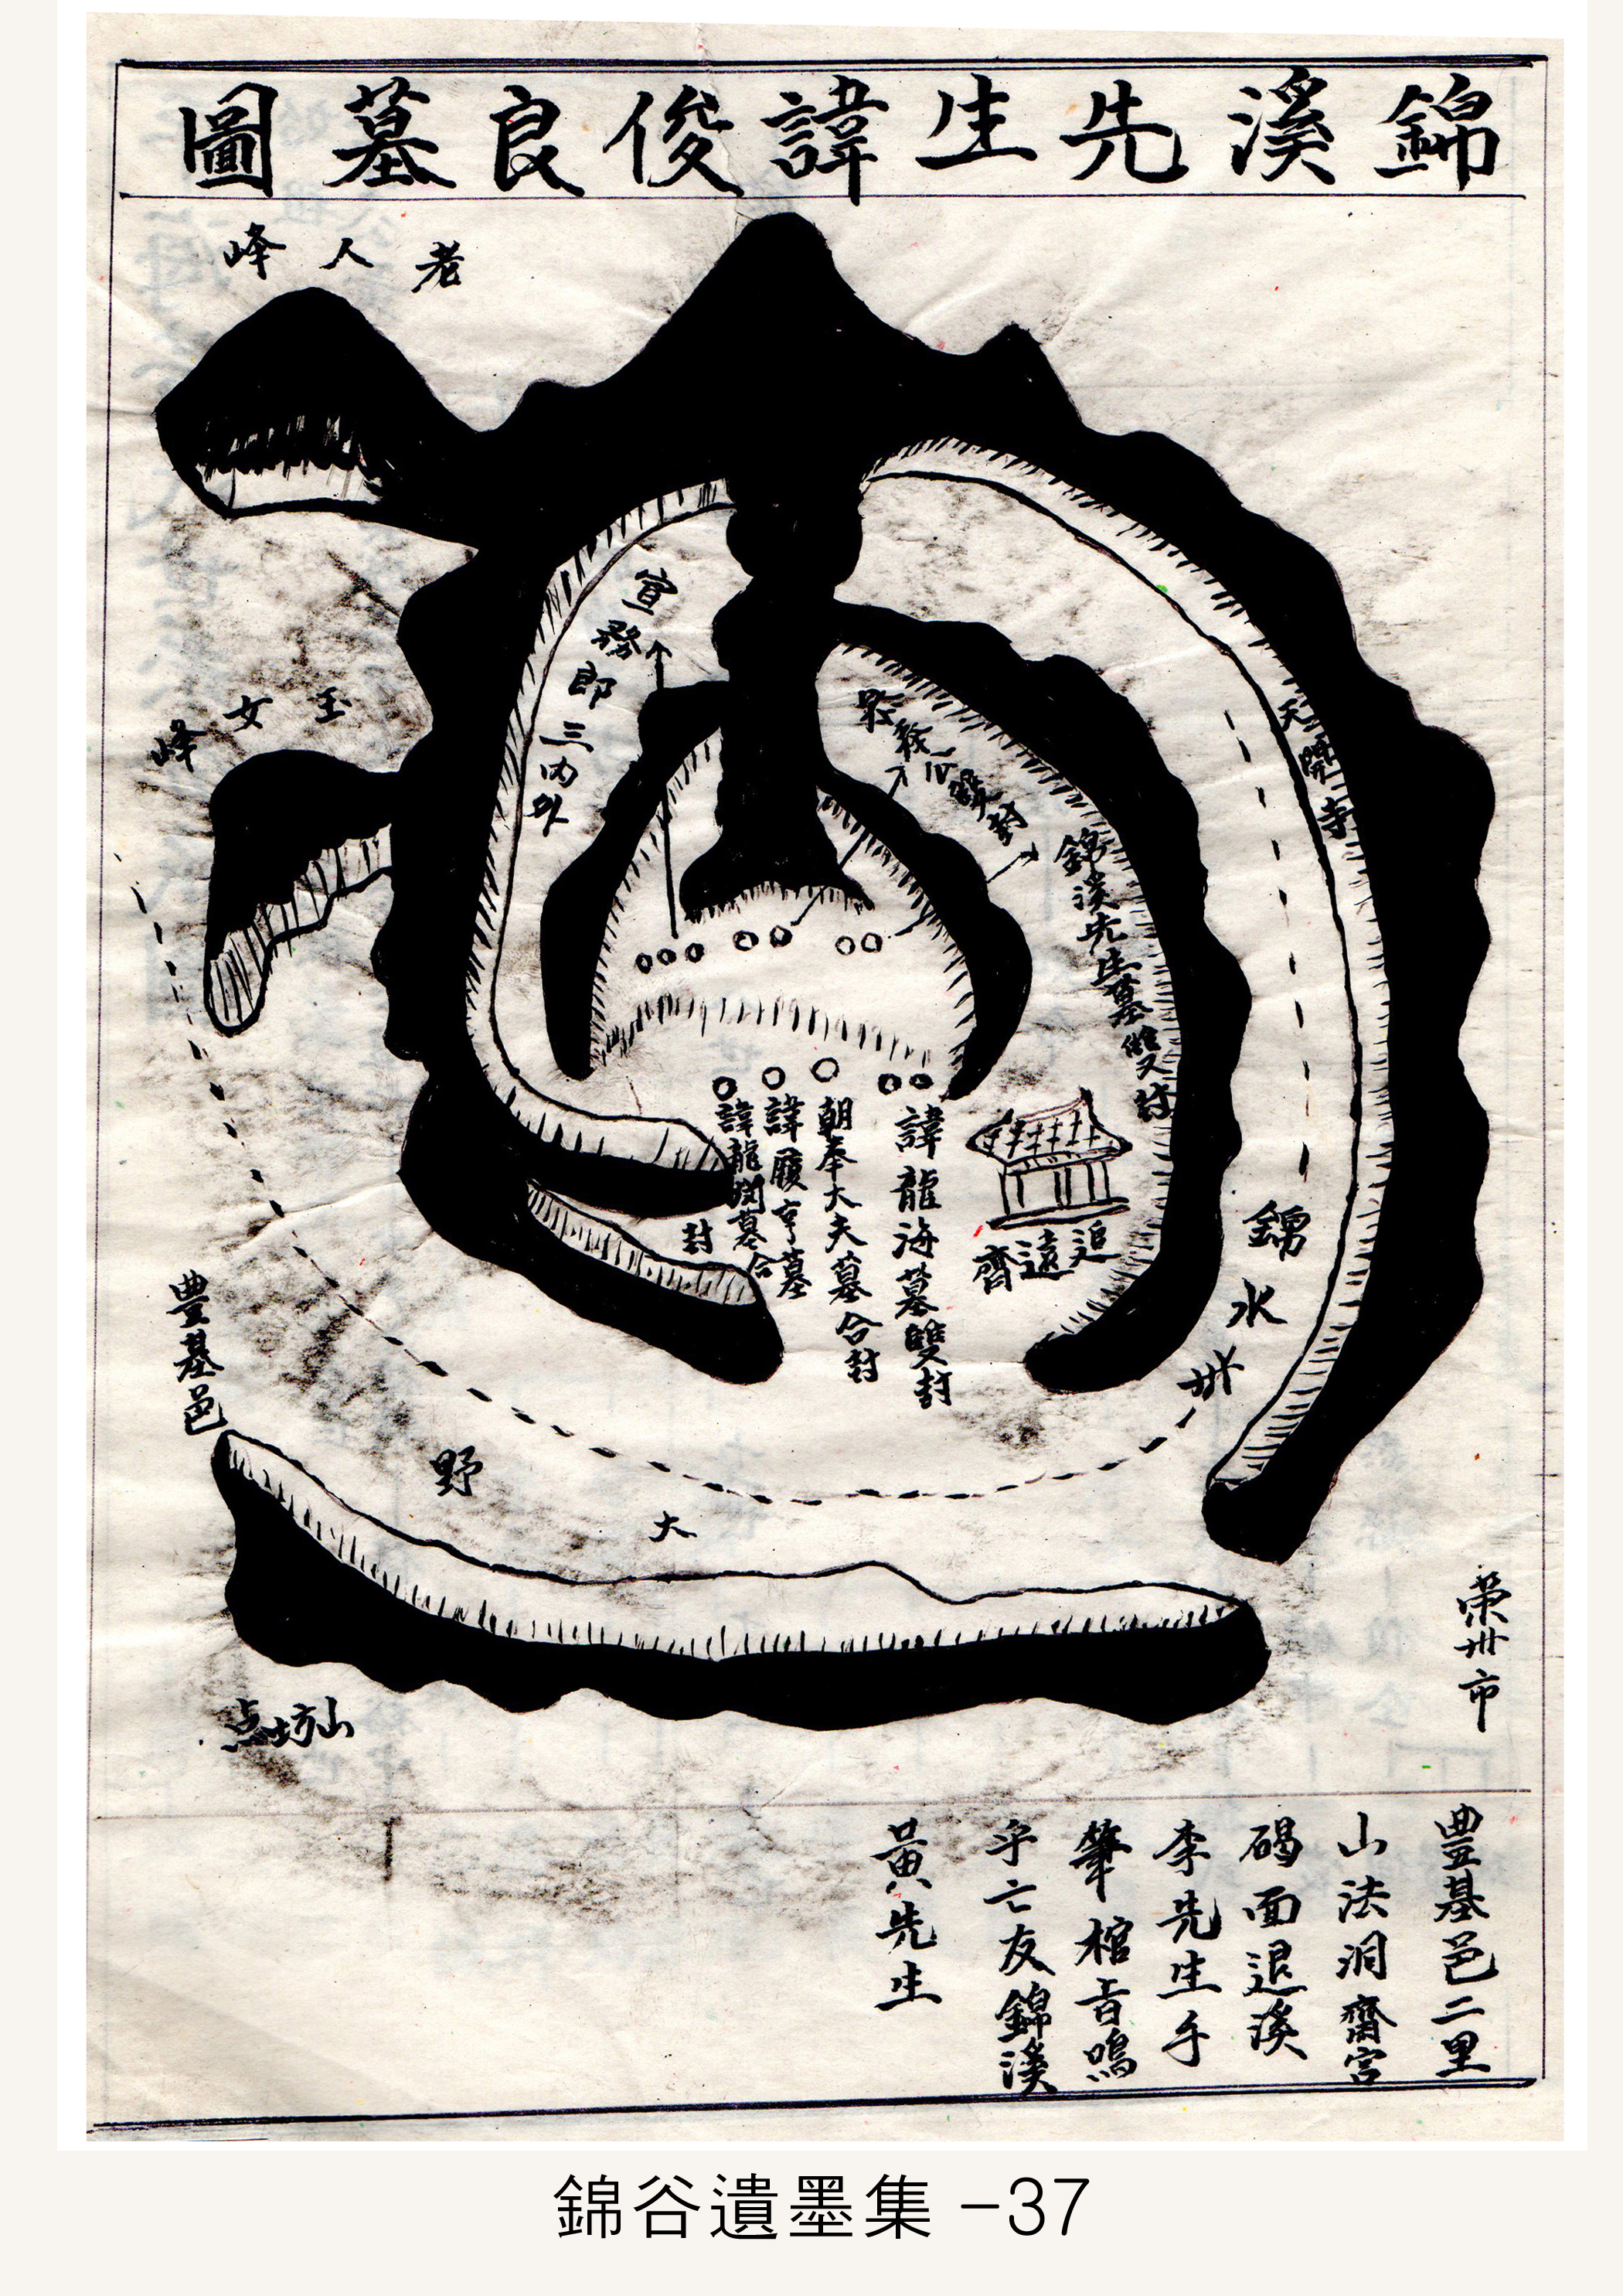 錦溪先生諱俊良墓圖
老人峰
玉女峰
宣務郎三內外
錦溪先生墓雙封
天開寺
諱龍海墓雙封
朝奉大夫墓合封
諱履亨墓
諱龍 墓合封
追遠齋
錦水城
豊基邑
大野
榮州市
点坊山
豊基邑二里
山法洞齋宮
碣面退溪
李先生手
筆棺音嗚
乎亡友錦溪
黃先生
錦谷遺墨集 -37